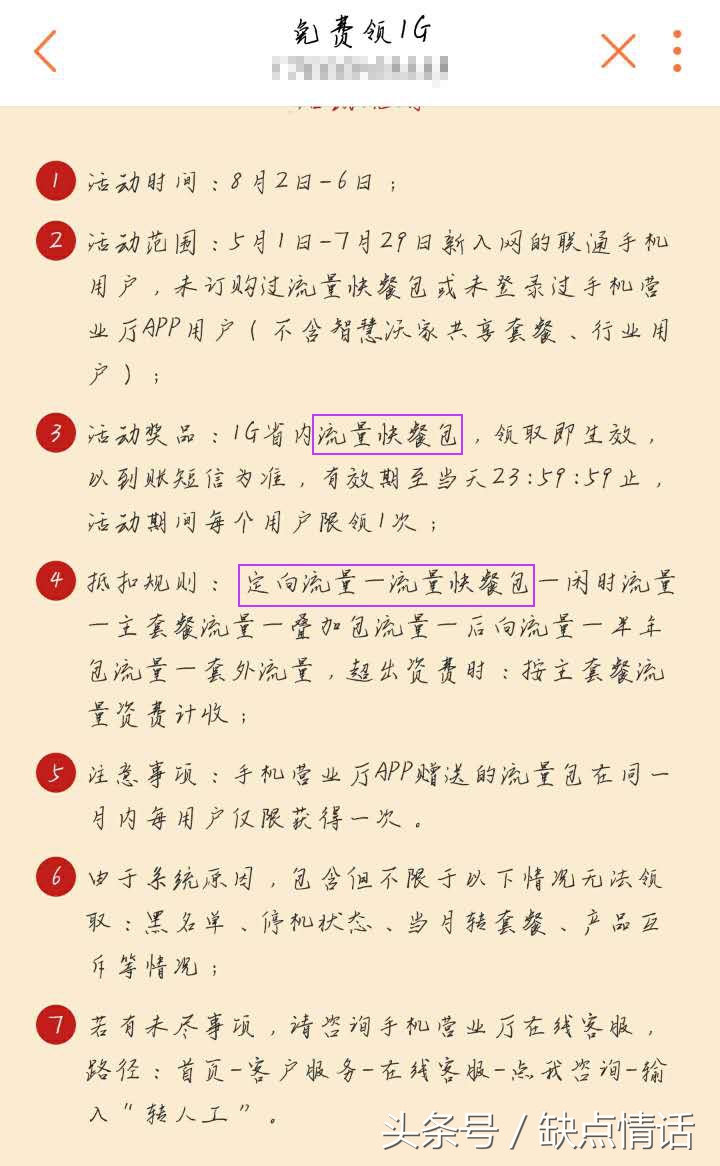 免费领1G
1 活动时间：8月2日-6日；
2 活动范围：5月1日-7月29日新入网的联通手机
用户，未订购过流量快餐包或未登录过手机营
业厅APP用户（不含智慧沃家共享套餐、行业用
户）；
3 活动奖品：1G省内流量快餐包，领取即生效，
以到账短信为准，有效期至当天23:59:59止，
活动期间每个用户限领1次；
4 抵扣规则：定向流量—流量快餐包—闲时流量
—主套餐流量—叠加包流量—后向流量—半年
包流量—套外流量，超出资费时：按主套餐流
量资费计收；
5 注意事项：手机营业厅APP赠送的流量包在同一
月内每用户仅限获得一次。
6 由于系统原因，包含但不限于以下情况无法领
取：黑名单、停机状态、当月转套餐、产品互
斥等情况；
7 若有未尽事项，请咨询手机营业厅在线客服，
路径：首页-客户服务-在线客服-点我咨询-输
入"转人工"。
头条号 / 缺点情话